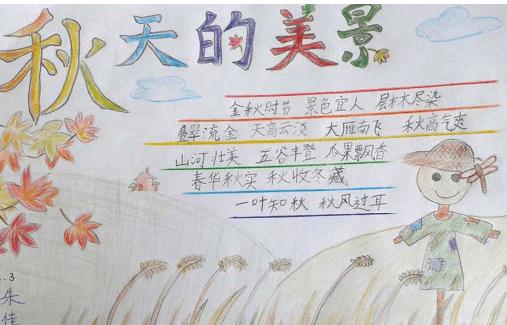 秋天的美景
金秋时节 景色宜人 层林尽染
叠翠流金 天高云淡 大雁南飞 秋高气爽
山河壮美 五谷丰登 瓜果飘香
春华秋实 秋收冬藏
一叶知秋 秋风过耳
.. 3
朱
佳